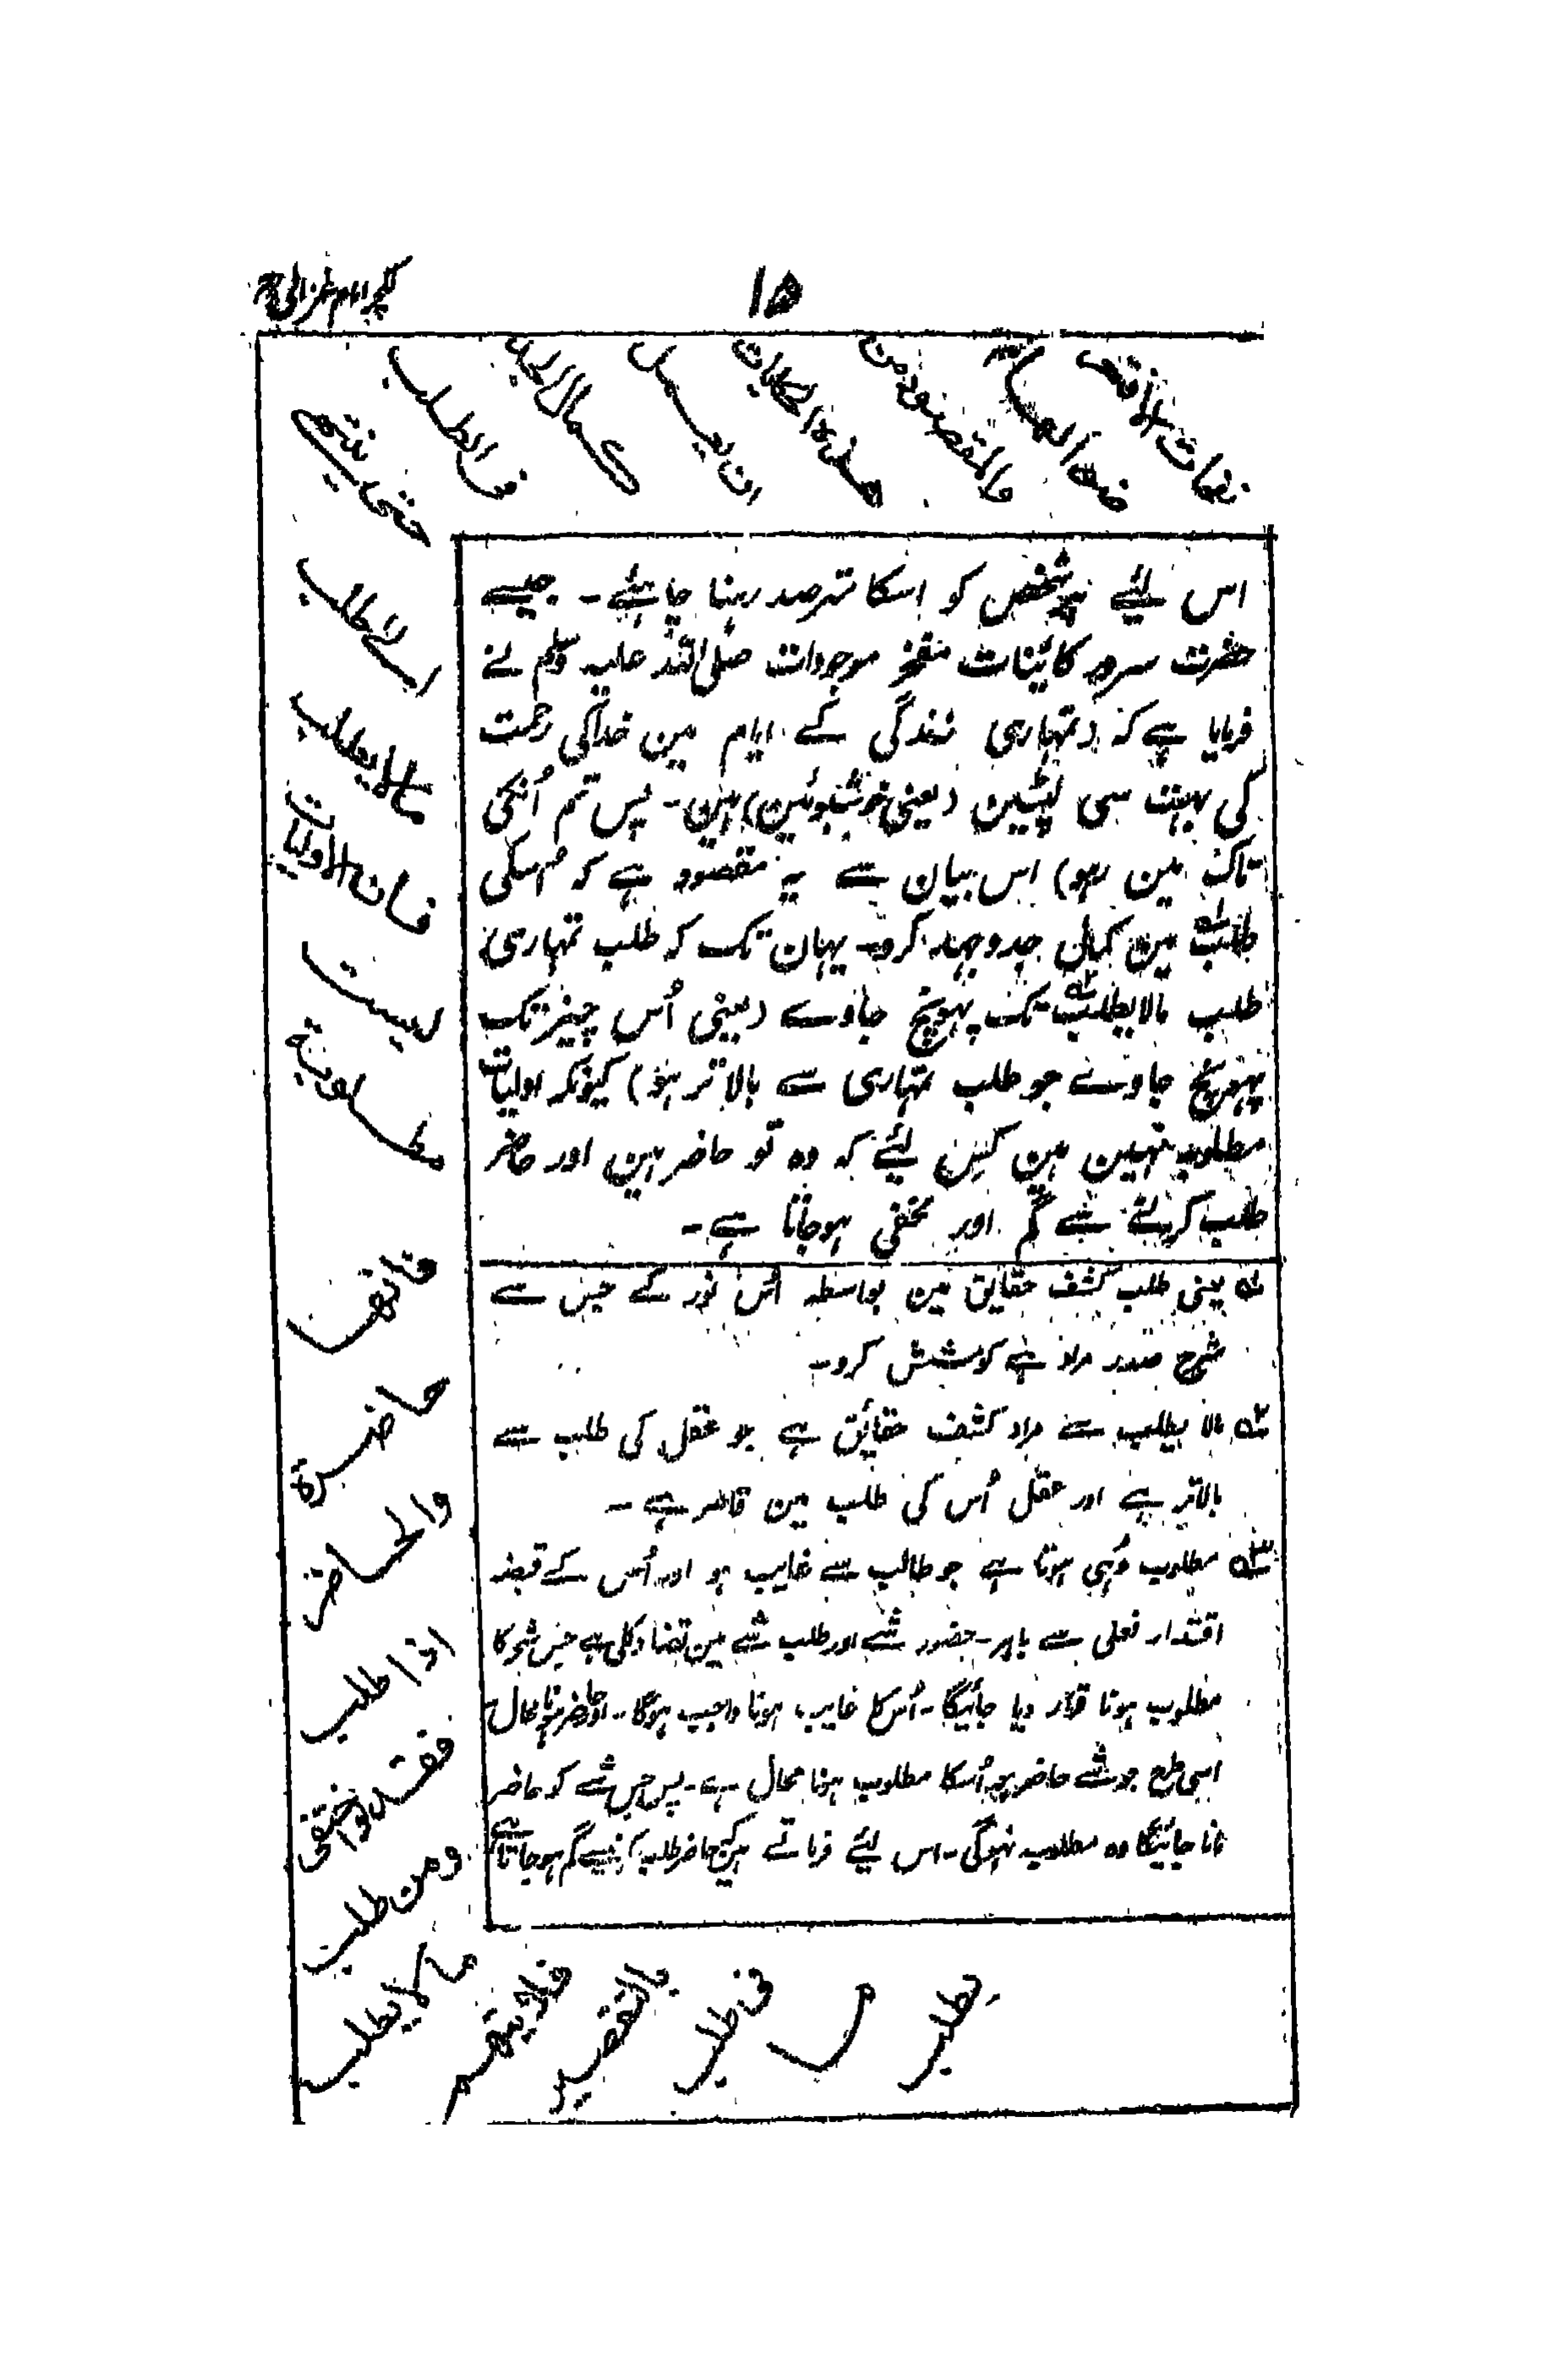 ۱۵
لکچر امام غزالی
نفحات الا فتعرضوا لها
والمقصود من
هذه الحكايات
ان يعمل
كمال الجد
فى الطلب
حتى ينتهى
الى طلب
مالا يطلب
فان الاوليات
ليست
مطلوبة
فانها
حاضرة
والحاضر
اذا طلب
فقد واختفى
ومن طلب
مالا يطلب
فلا يتهم
بالتقصير
فى طلب
ما
يطلب
اس لئے ہر شخص کو اسکا مترصد رہنا چاہئے۔ جیسے
حضرت سرور کائنات مفخر موجودات صلی اللہ علیہ وسلم نے
فرمایا ہے کہ (تمہاری زندگی کے ایام مین خداکی رحمت
کی بہت سی لپٹین (یعنی خوشبوئین) ہین۔ پس تم اُنکی
تاک مین رہو) اس بیان سے یہ مقصود ہے کہ اسکی
طلب۱؎ مین کمال جدوجہد کرو۔ یہان تک کہ طلب تمہاری
طلب مالایطلب۲؎ تک پہونچ جاوے (یعنی اُس چیز تک
پہونچ جاوے جو طلب تمہاری سے بالاتر ہو) کیونکہ اولیات
مطلوب نہین ہین کس لئے کہ وہ تو حاضر ہین اور حاضر
طلب کرنے سے گم اور مخفی ہوجاتا ہے۔
۱؎ یعنی طلب کشف حقایق مین بواسطہ اُس نور کے جس سے
شرح صدر مراد ہے کوشش کرو۔
۲؎ مالا یطلب سے مراد کشف حقائق ہے جو عقل کی طلب سے
بالاتر ہے اور عقل اُس کی طلب مین قاصر ہے۔
۳؎ مطلوب وہی ہوتا ہے جو طالب سے غایب ہو اور اُس کے قبضہ
اقتدار فعلی سے باہر۔ حضور شے اور طلب شے مین تضاد کلی ہے جس شے کا
مطلوب ہونا قرار دیا جائیگا۔ اُس کا غایب ہونا واجب ہوگا۔ اور حاضر ہونا محال
اسی طرح جو شے حاضر ہے اُسکا مطلوب ہونا محال ہے۔ پس جس شے کو حاضر
مانا جائیگا وہ مطلوب نہوگی۔ اس لئے فرماتے ہین کہ حاضر طلب کرنے سے گم ہوجاتا ہے